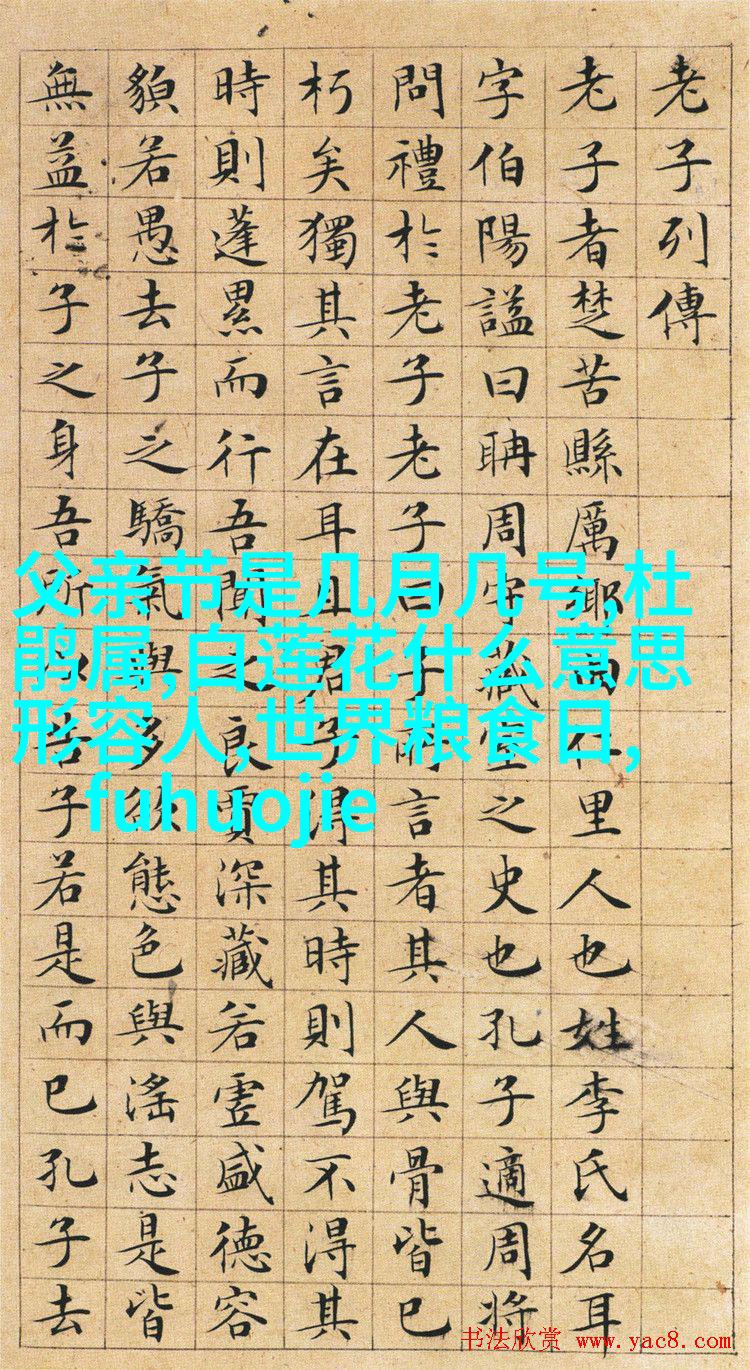 老子列傳
老子者楚苦縣厲鄉曲仁里人也姓李氏名耳
字伯陽謚曰聃周守藏室之史也孔子適周將
問禮於老子老子曰子所言者其人與骨皆已
朽矣獨其言在耳且君子得其時則駕不得其
時則蓬累而行吾聞之良賈深藏若虛盛德容
貌若愚去子之驕氣與多欲態色與淫志是皆
無益於子之身吾所以告子若是而已孔子去
父亲节是几月几号,杜
鹃属,白莲花什么意思
形容人,世界粮食日,
fuhuojie
书法欣赏 www.yac8.com